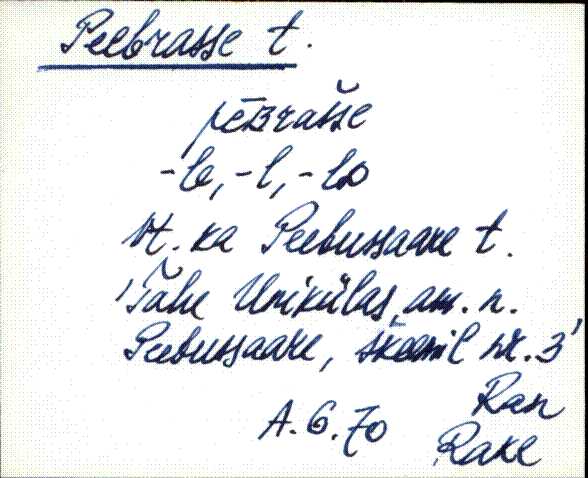 Peebrasse t.
pēʙrašše
-le, -l, -lD
Vt. ka Peebussaare t.
'Talu Unikülas, am. n.
Peebussaare, skeemil nr. 3'
Ran
A.6.70 Rake